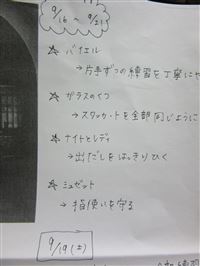 9/16 ~ 9/21
☆ バイエル
→ 片手ずつの練習を丁寧にや
☆ ガラスのくつ
→ スタッカートを全部同じように
☆ ナイトとレディ
→ 出だしをはっきりひく
☆ ミュゼット
→ 指使いを守る
9/19(土)